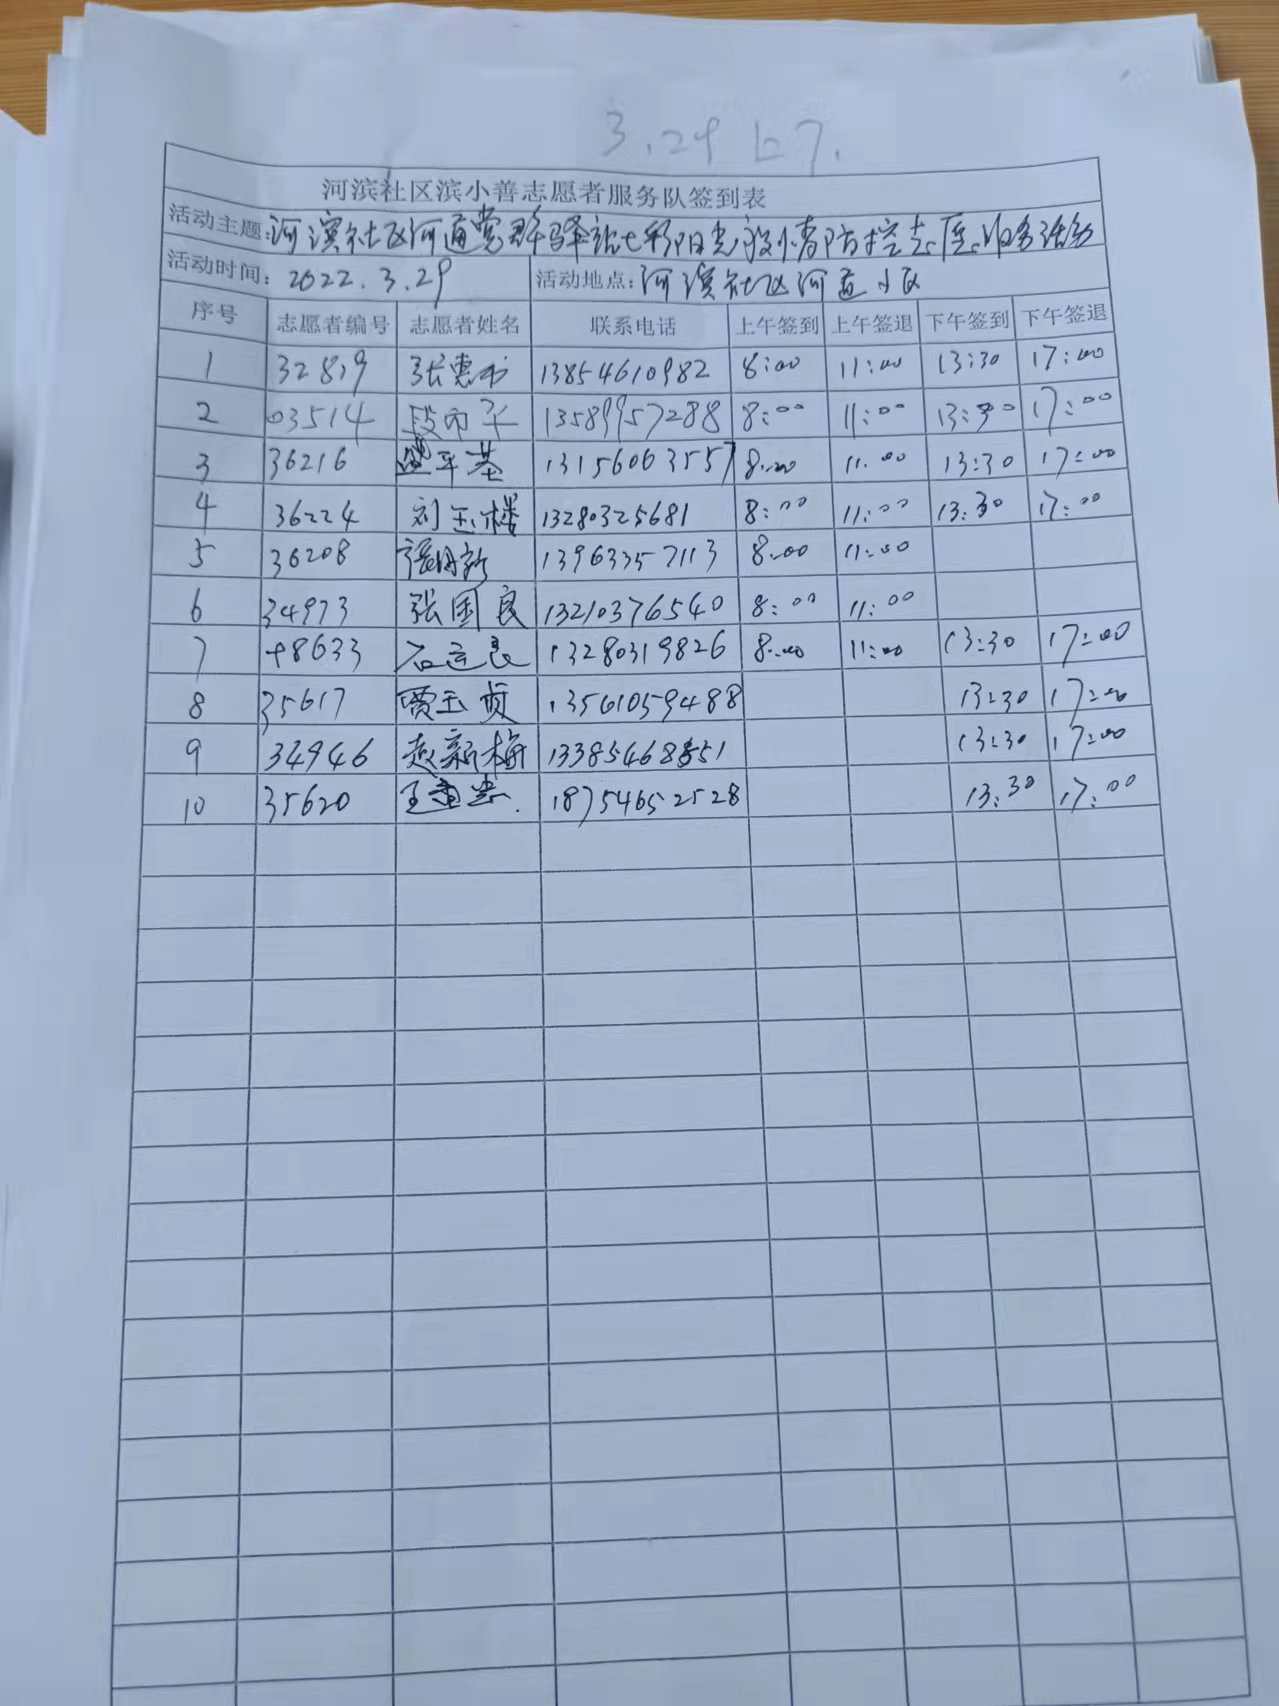 3.29 上7.
河滨社区滨小善志愿者服务队签到表
活动主题:河滨社区河通党群驿站七彩阳光 防控志愿服务活动
活动时间: 2022.3.29 活动地点: 河滨社区河 小区
序号 志愿者编号 志愿者姓名 联系电话 上午签到 上午签退 下午签到 下午签退
1 32819 张惠 13854610982 8:00 11:00 13:30 17:00
2 03514 段 13589957288 8:00 11:00 13:30 17:00
3 36216 平基 13156063557 8:00 11:00 13:30 17:00
4 36224 刘玉楼 13280325681 8:00 11:00 13:30 17:00
5 36208 張 13963357113 8:00 11:00
6 34973 张国良 13210376540 8:00 11:00
7 48633 石运良 13280319826 8:00 11:00 13:30 17:00
8 35617 贾玉贞 13561059488 13:30 17:00
9 34946 赵新梅 13385468551 13:30 17:00
10 35620 王 18754652528 13:30 17:00